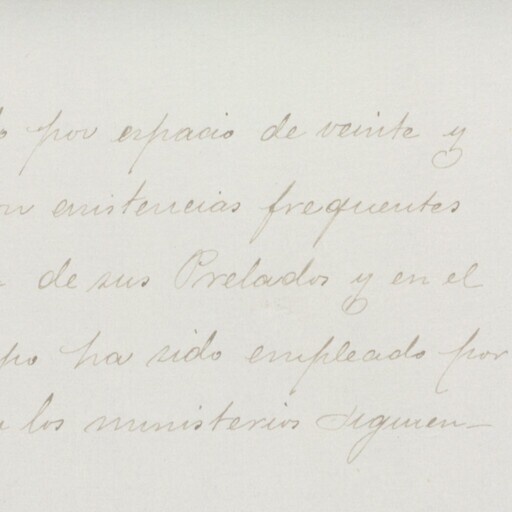 por espacio de veinte y
on existencias frequentes
de sus Prelados y en el
po ha sido empleado por
los ministerios siguien-